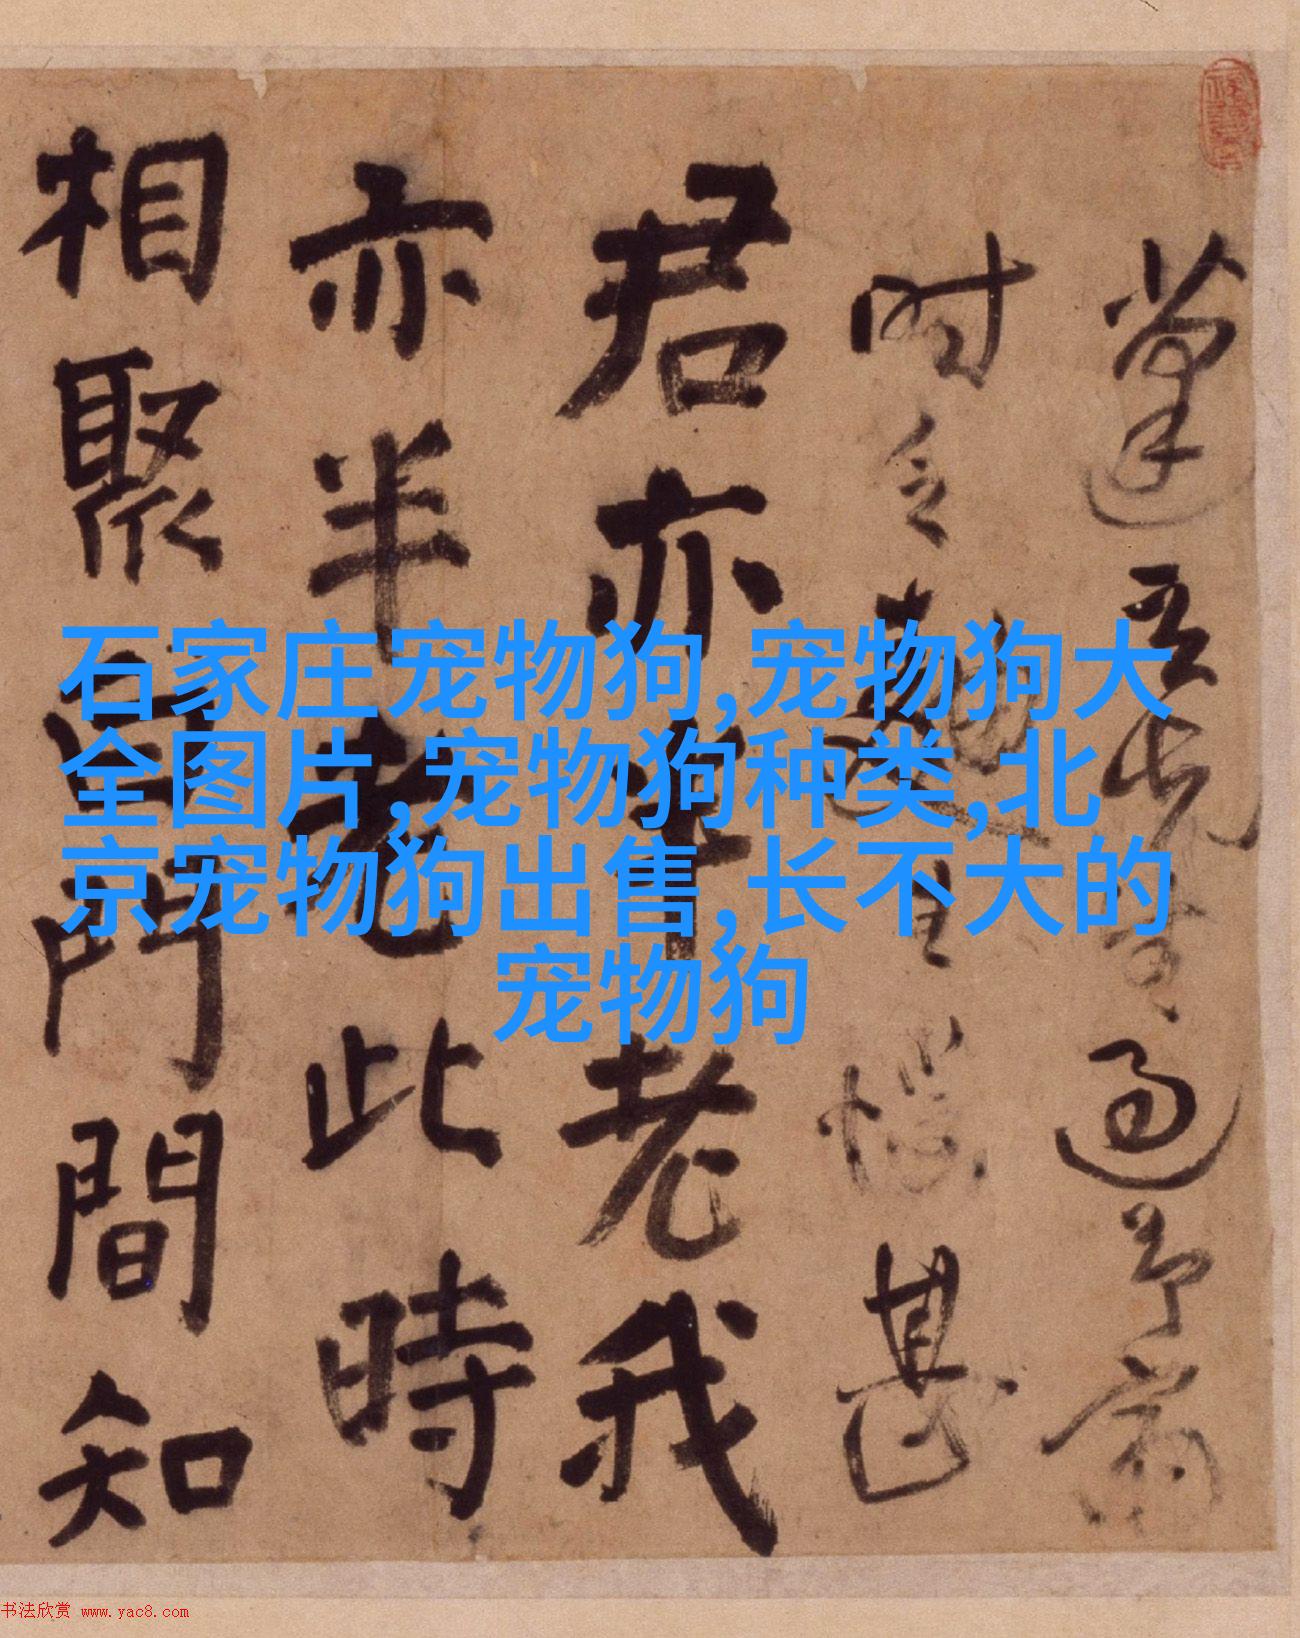 石家庄宠物狗,宠物狗大
全图片,宠物狗种类,北
京宠物狗出售,长不大的
宠物狗
過予齋
时甚
君亦半老我
亦半老此時
相聚白門間知
书法欣赏 www.yac8.com